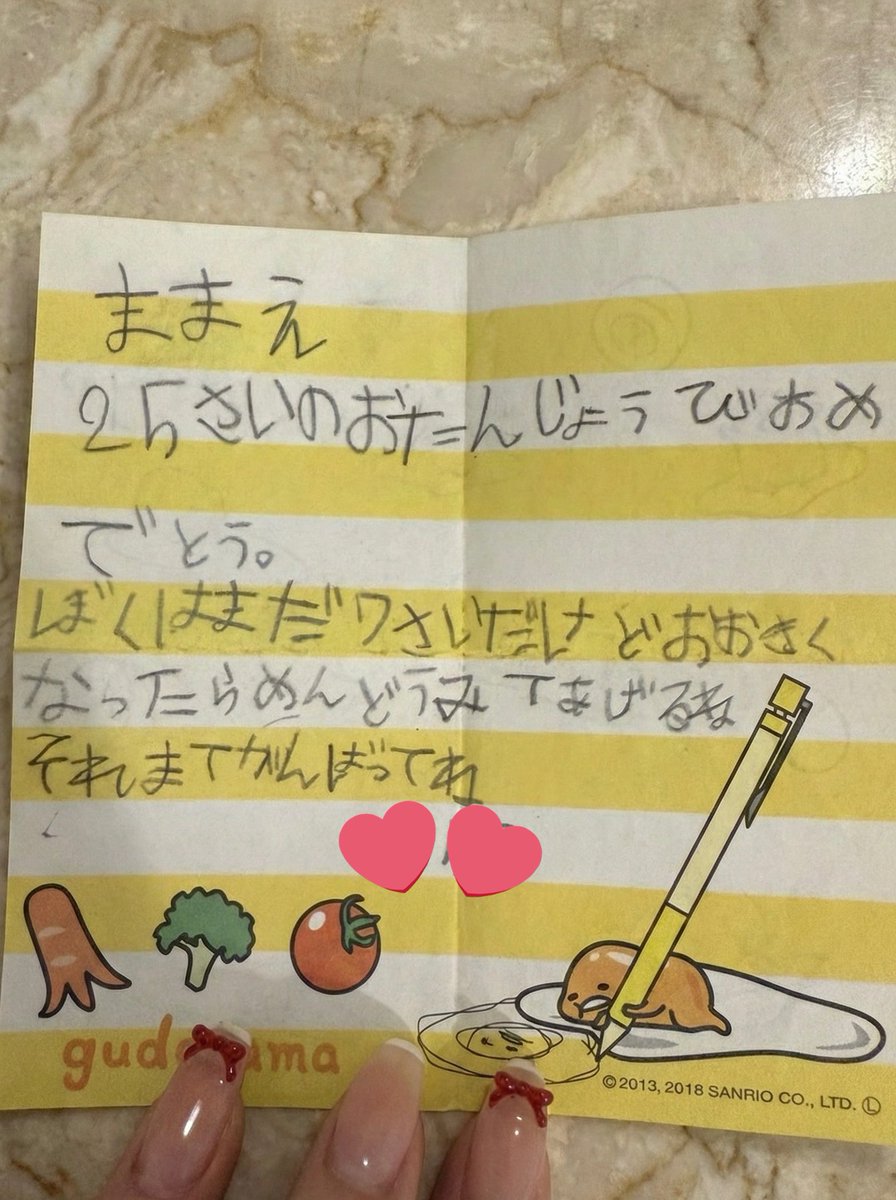 ままえ
25さいのおたんじょうびおめ
でとう。
ぼくはまだ7さいだけどおおきく
なったらめんどうみてあげるね
それまでがんばってね
gud ama
©2013, 2018 SANRIO CO., LTD. Ⓛ